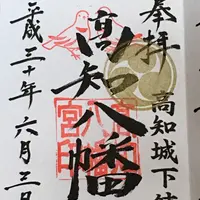 奉拝 高知城下
高知八幡
平成三十年六月三日
宮印